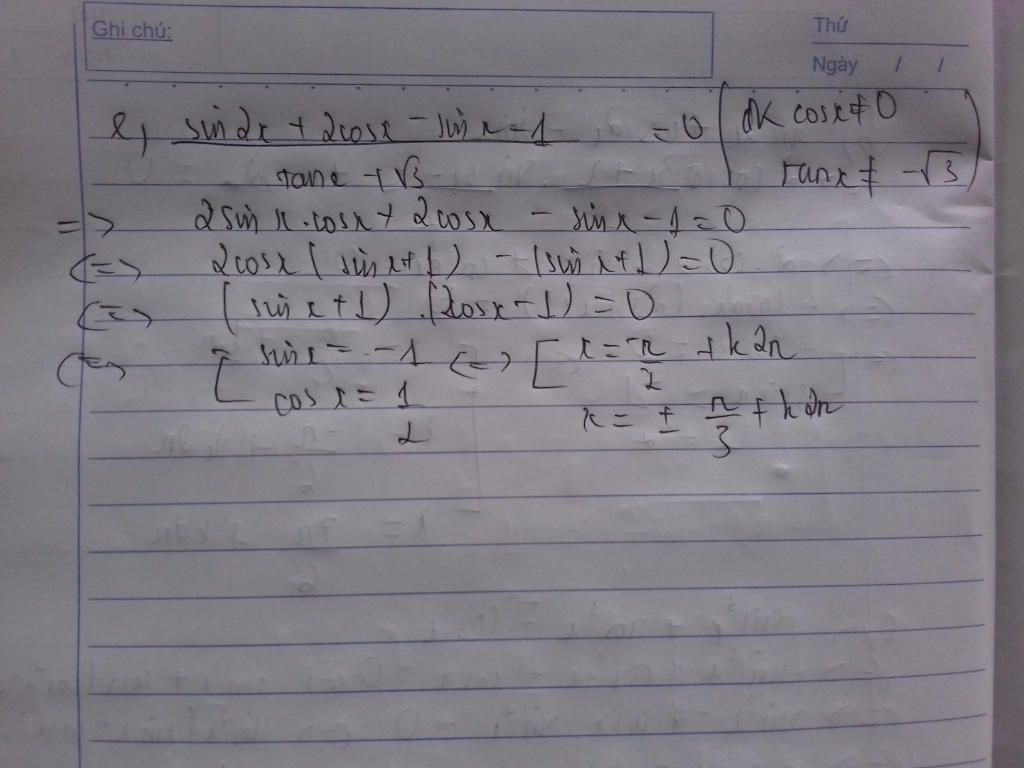 Ghi chú:
Thứ
Ngày / /
e, (sin2x + 2cosx - sinx - 1) / (tanx + √3) = 0 (ĐK cosx ≠ 0
tanx ≠ -√3)
=> 2sinx.cosx + 2cosx - sinx - 1 = 0
<=> 2cosx(sinx+1) - (sinx+1) = 0
<=> (sinx+1).(2cosx-1) = 0
<=> [ sinx = -1 <=> [ x = -π/2 + k2π
cosx = 1/2 x = ± π/3 + k2π